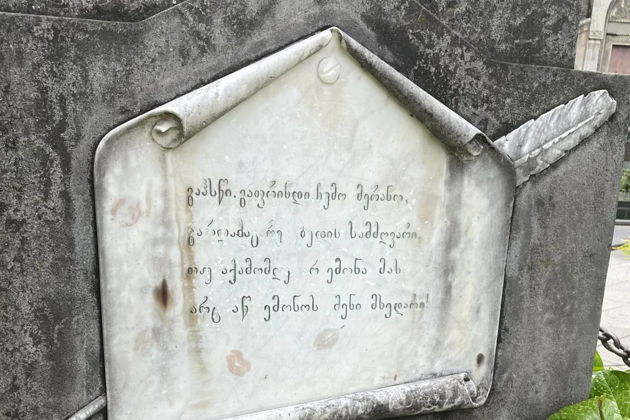 გაჰსწი. გაფრინდი ჩემო მერანო,
გარდამატარე ბედის სამძღვარი,
თუ აქამომდე არ ემონა მას
არც აწ ემონოს შენი მხედარი!